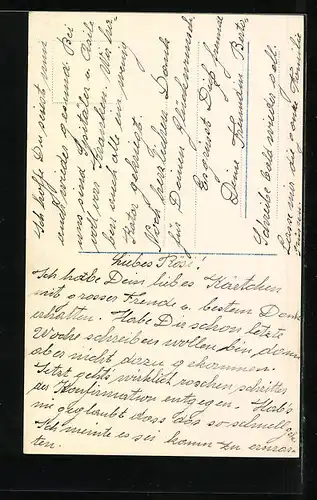 Liebes Rösi!
Ich habe Dein liebes Kärtchen
mit grosser Freude u. bestem Dank
erhalten. Habe Dir schon letzte
Woche schreiben wollen, bin dann
aber nicht dazu gekommen.
Jetzt geht's wirklich raschen schrittes
der Konfirmation entgegen. Hab's
nie geglaubt dass das so schnell
Ich meinte es sei kaum zu erwar-
ten.
Ich hoffe Du seiest nun
auch wieder gesund. Bei
uns sind Spitäler u. Asile
voll von Kranken. Wir ha-
ben auch alle ein wenig
Kater gehabt.
Noch herzlichen Dank
für Deinen Glückwunsch.
Es grüsst Dich
Deine Freundin
Schreibe bald wieder
Lasse mir die ganze Familie
grüssen.